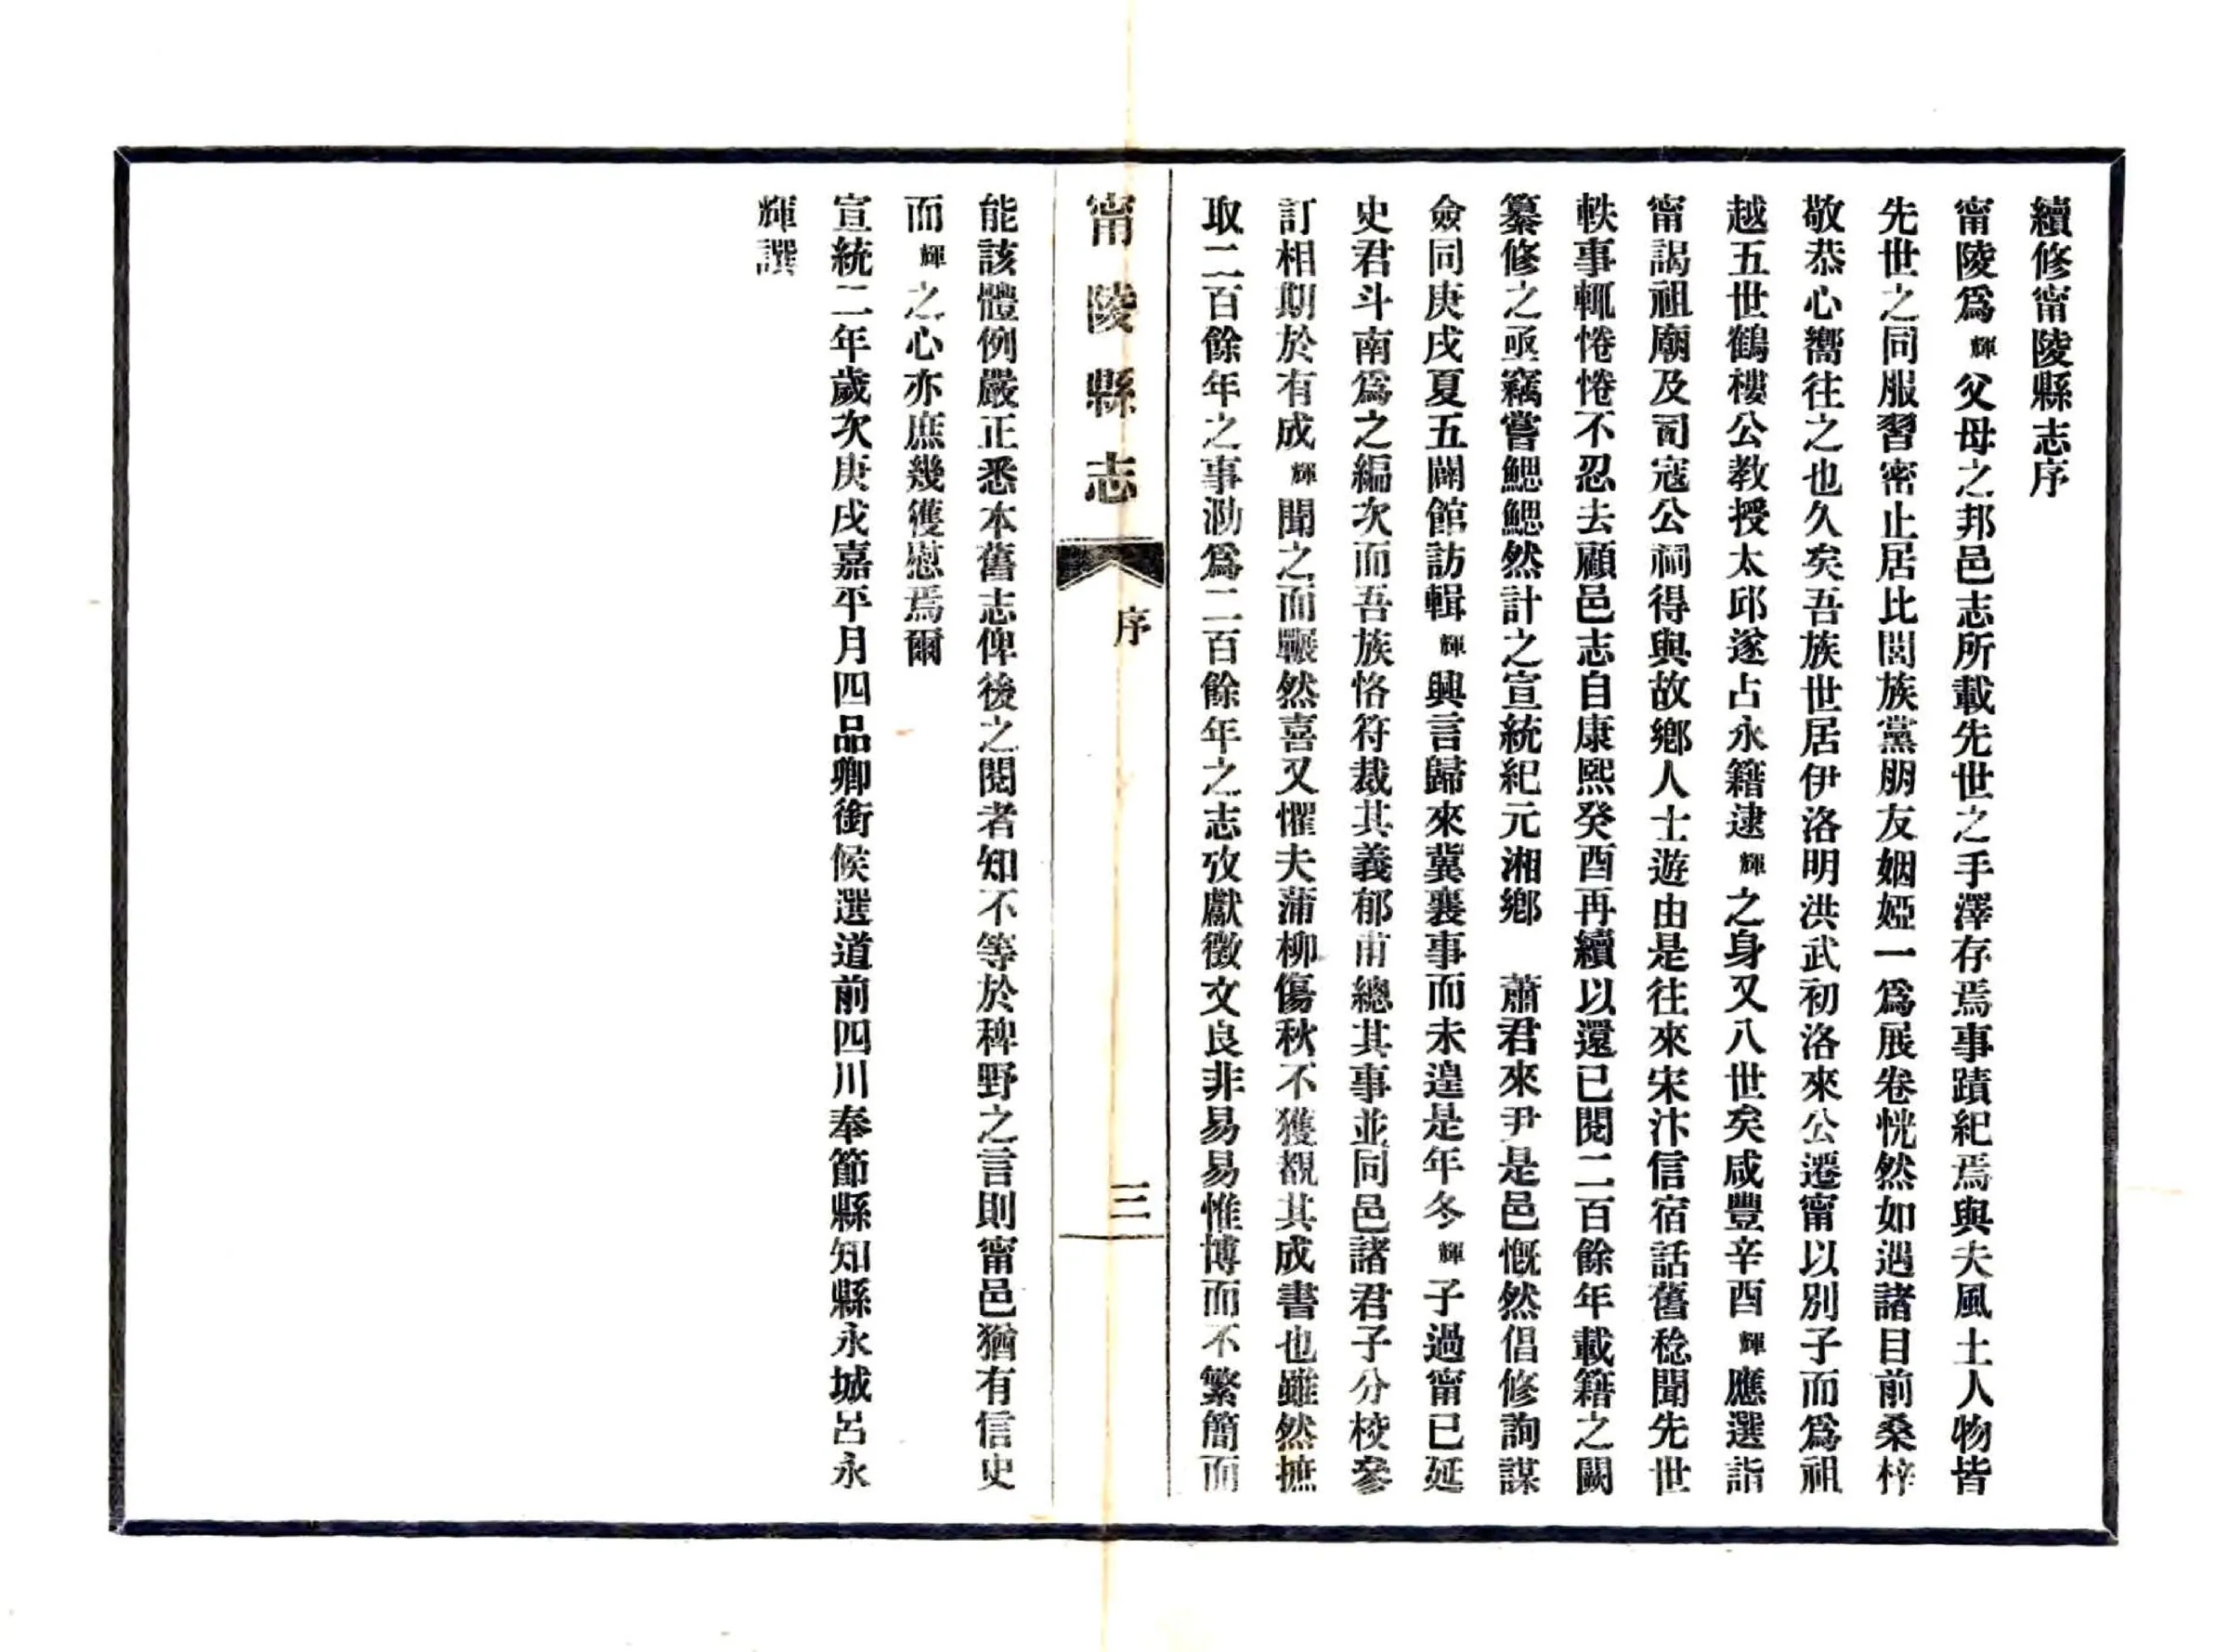 續修甯陵縣志序
甯陵爲輝父母之邦邑志所載先世之手澤存焉事蹟紀焉與夫風土人物皆
先世之同服習密止居比閭族黨朋友姻婭一爲展卷恍然如遇諸目前桑梓
敬恭心嚮往之也久矣吾族世居伊洛明洪武初洛來公遷甯以別子而爲祖
越五世鶴樓公教授太邱遂占永籍逮輝之身又八世矣咸豐辛酉輝應選詣
甯謁祖廟及司寇公祠得與故鄉人士遊由是往來宋汴信宿話舊稔聞先世
軼事輒惓惓不忍去顧邑志自康熙癸酉再續以還已閱二百餘年載籍之闕
纂修之亟竊嘗鰓鰓然計之宣統紀元湘鄉　蕭君來尹是邑慨然倡修詢謀
僉同庚戌夏五闢館訪輯輝興言歸來冀襄事而未遑是年冬輝子過甯已延
史君斗南爲之編次而吾族恪符裁其義郁甫總其事並同邑諸君子分校參
訂相期於有成輝聞之而囅然喜又懼夫蒲柳傷秋不獲覩其成書也雖然摭
取二百餘年之事泐爲二百餘年之志攷獻徵文良非易易惟博而不繁簡而
甯陵縣志
序
三
能該體例嚴正悉本舊志俾後之閱者知不等於稗野之言則甯邑猶有信史
而輝之心亦庶幾獲慰焉爾
宣統二年歲次庚戌嘉平月四品卿銜候選道前四川奉節縣知縣永城呂永
輝譔